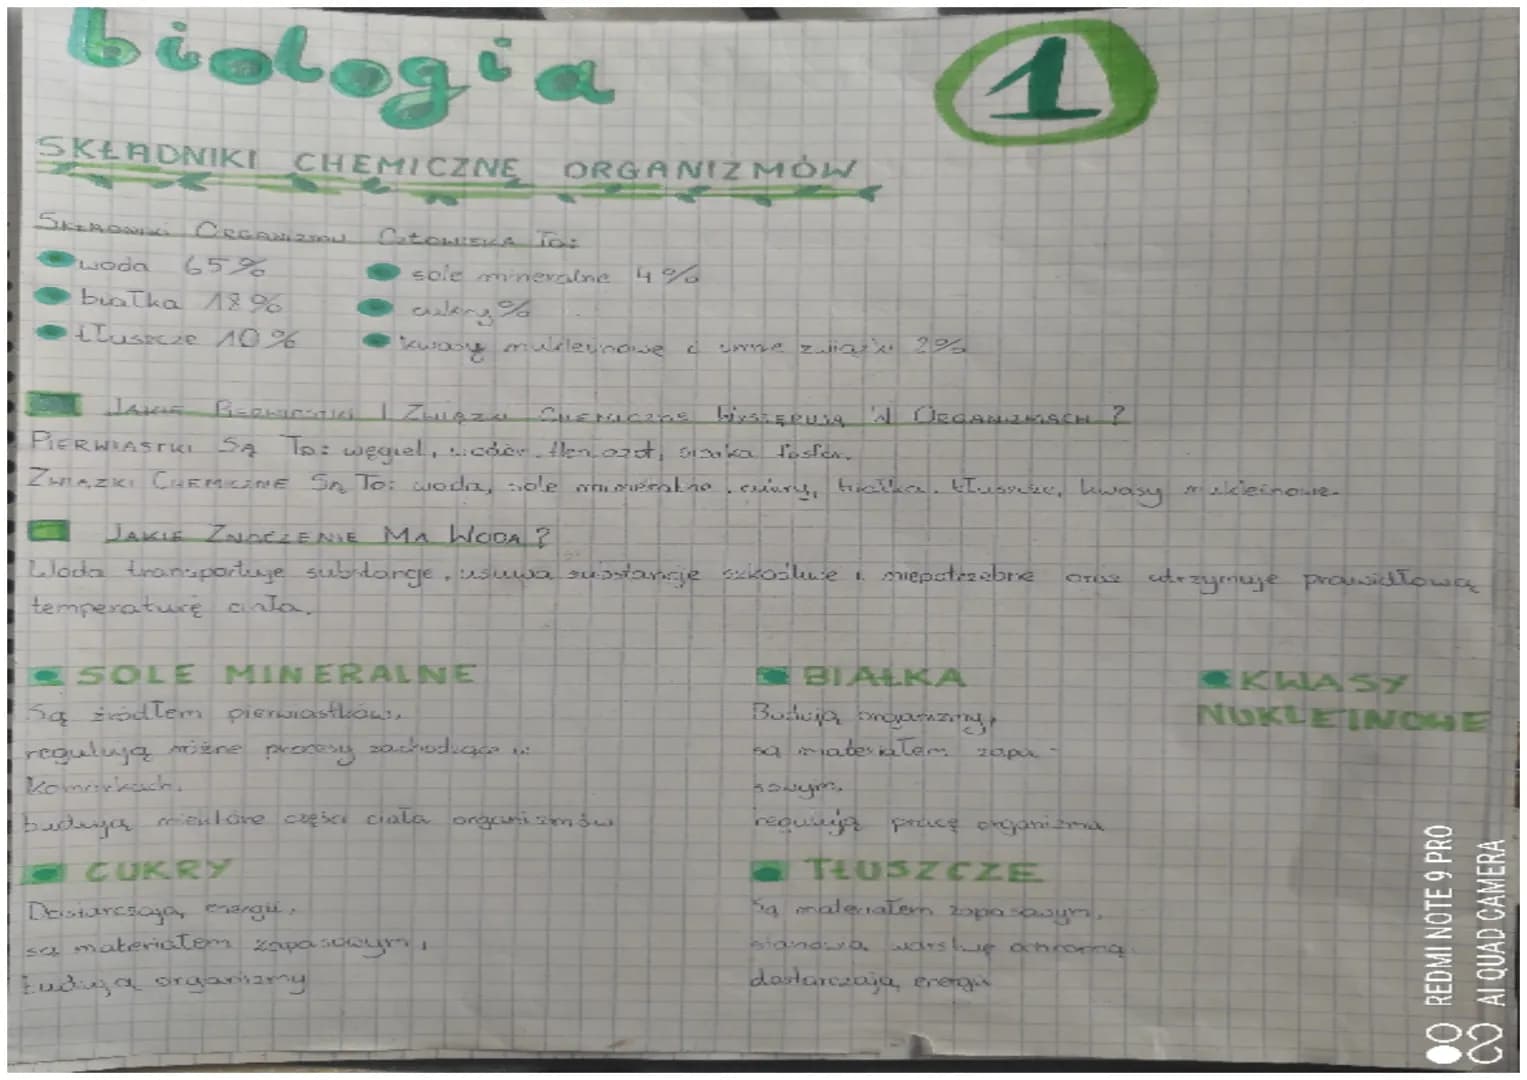 biologia 1
SKŁADNIKI CHEMICZNE ORGANIZMÓW
SKŁADNIKI ORGANIZMU CZŁOWIEKA TO:
woda 65%
białka 18%
tłuszcze 10%
sole mineralne 4%
cukry %
kwasy nukleinowe i inne związki 2%
JAKIE PIERWIASTKI I ZWIĄZKI CHEMICZNE WYSTĘPUJĄ W ORGANIZMACH?
PIERWIASTKI SĄ TO: węgiel, wodór, tlen, azot, siarka fosfor.
ZWIĄZKI CHEMICZNE SĄ TO: woda, sole mineralne, cukry, białka, tłuszcze, kwasy nukleinowe.
JAKIE ZNACZENIE MA WODA?
Woda transportuje substancje, usuwa substancje szkodliwe i niepotrzebne oraz utrzymuje prawidłową
temperaturę ciała.
SOLE MINERALNE
Są źródłem pierwiastków,
regulują różne procesy zachodzące w
komórkach,
budują niektóre części ciała organizmów
BIAŁKA
Budują organizmy,
są materiałem zapa-
sowym,
regulują pracę organizma
KWASY
NUKLEINOWE
CUKRY
Dostarczają energii,
są materiałem zapasowym,
budują organizmy
TŁUSZCZE
Są materiałem zapasowym,
stanowią warstwę ochronną
dostarczają energii
REDMI NOTE 9 PRO
AI QUAD CAMERA